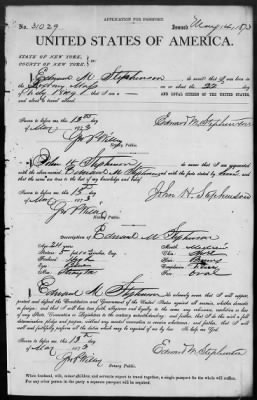 APPLICATION FOR PASSPORT.
No. 31029 Issued May 14, 1873
UNITED STATES OF AMERICA.
STATE OF NEW YORK,
COUNTY OF NEW YORK.
I, Edward M. Stephenson do swear that I was born in
on or about the 22 day
of July 1849 that I am a AND LOYAL CITIZEN OF THE UNITED STATES,
and about to travel abroad.
Sworn to before me, this 13th day
of May 1873 Edward M. Stephenson
Notary Public.
I, John H. Stephenson do swear that I am acquainted
with the above-named Edward M. Stephenson and with the facts stated by him, and that
the same are true to the best of my knowledge and belief.
Sworn to before me, this 13th day
of May 1873 John H. Stephenson
Notary Public.
Description of Edward M. Stephenson
Age: 24 years
Stature: 5 feet
Forehead:
Eyes:
Nose: Straight
Mouth:
Chin:
Hair:
Complexion:
Face: Oval
I, Edward M. Stephenson do solemnly swear that I will support,
protect and defend the Constitution and Government of the United States against all enemies, whether domestic
or foreign; and that I will bear true faith, allegiance and loyalty to the same, any ordinance, resolution or law
of any State, Convention or Legislature to the contrary notwithstanding; and further, that I do this with a full
determination, pledge and purpose, without any mental reservation or evasion whatsoever; and further, that I will
well and faithfully perform all the duties which may be required of me by law. So help me God.
Sworn to before me, this 13th day
of May 1873 Edward M. Stephenson
Notary Public.
When husband, wife, minor children and servants expect to travel together, a single passport for the whole will suffice.
For any other person in the party a separate passport will be required.